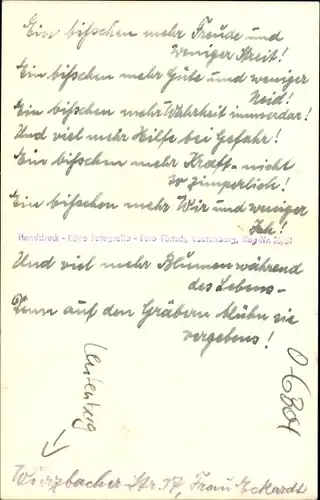 Ein bißchen mehr Freude und
weniger Streit!
Ein bißchen mehr Güte und weniger
Neid!
Ein bißchen mehr Wahrheit immerdar!
Und viel mehr Hilfe bei Gefahr!
Ein bißchen mehr Kraft - nicht
so zimperlich!
Ein bißchen mehr Wir und weniger
Ich!
Handdruck - Echte Fotografie - Foto
Und viel mehr Blumen während
des Lebens -
Denn auf den Gräbern blühn sie
vergebens!
Leutenberg
0-6804
Würzbacher Str. 17, Frau Eckardt